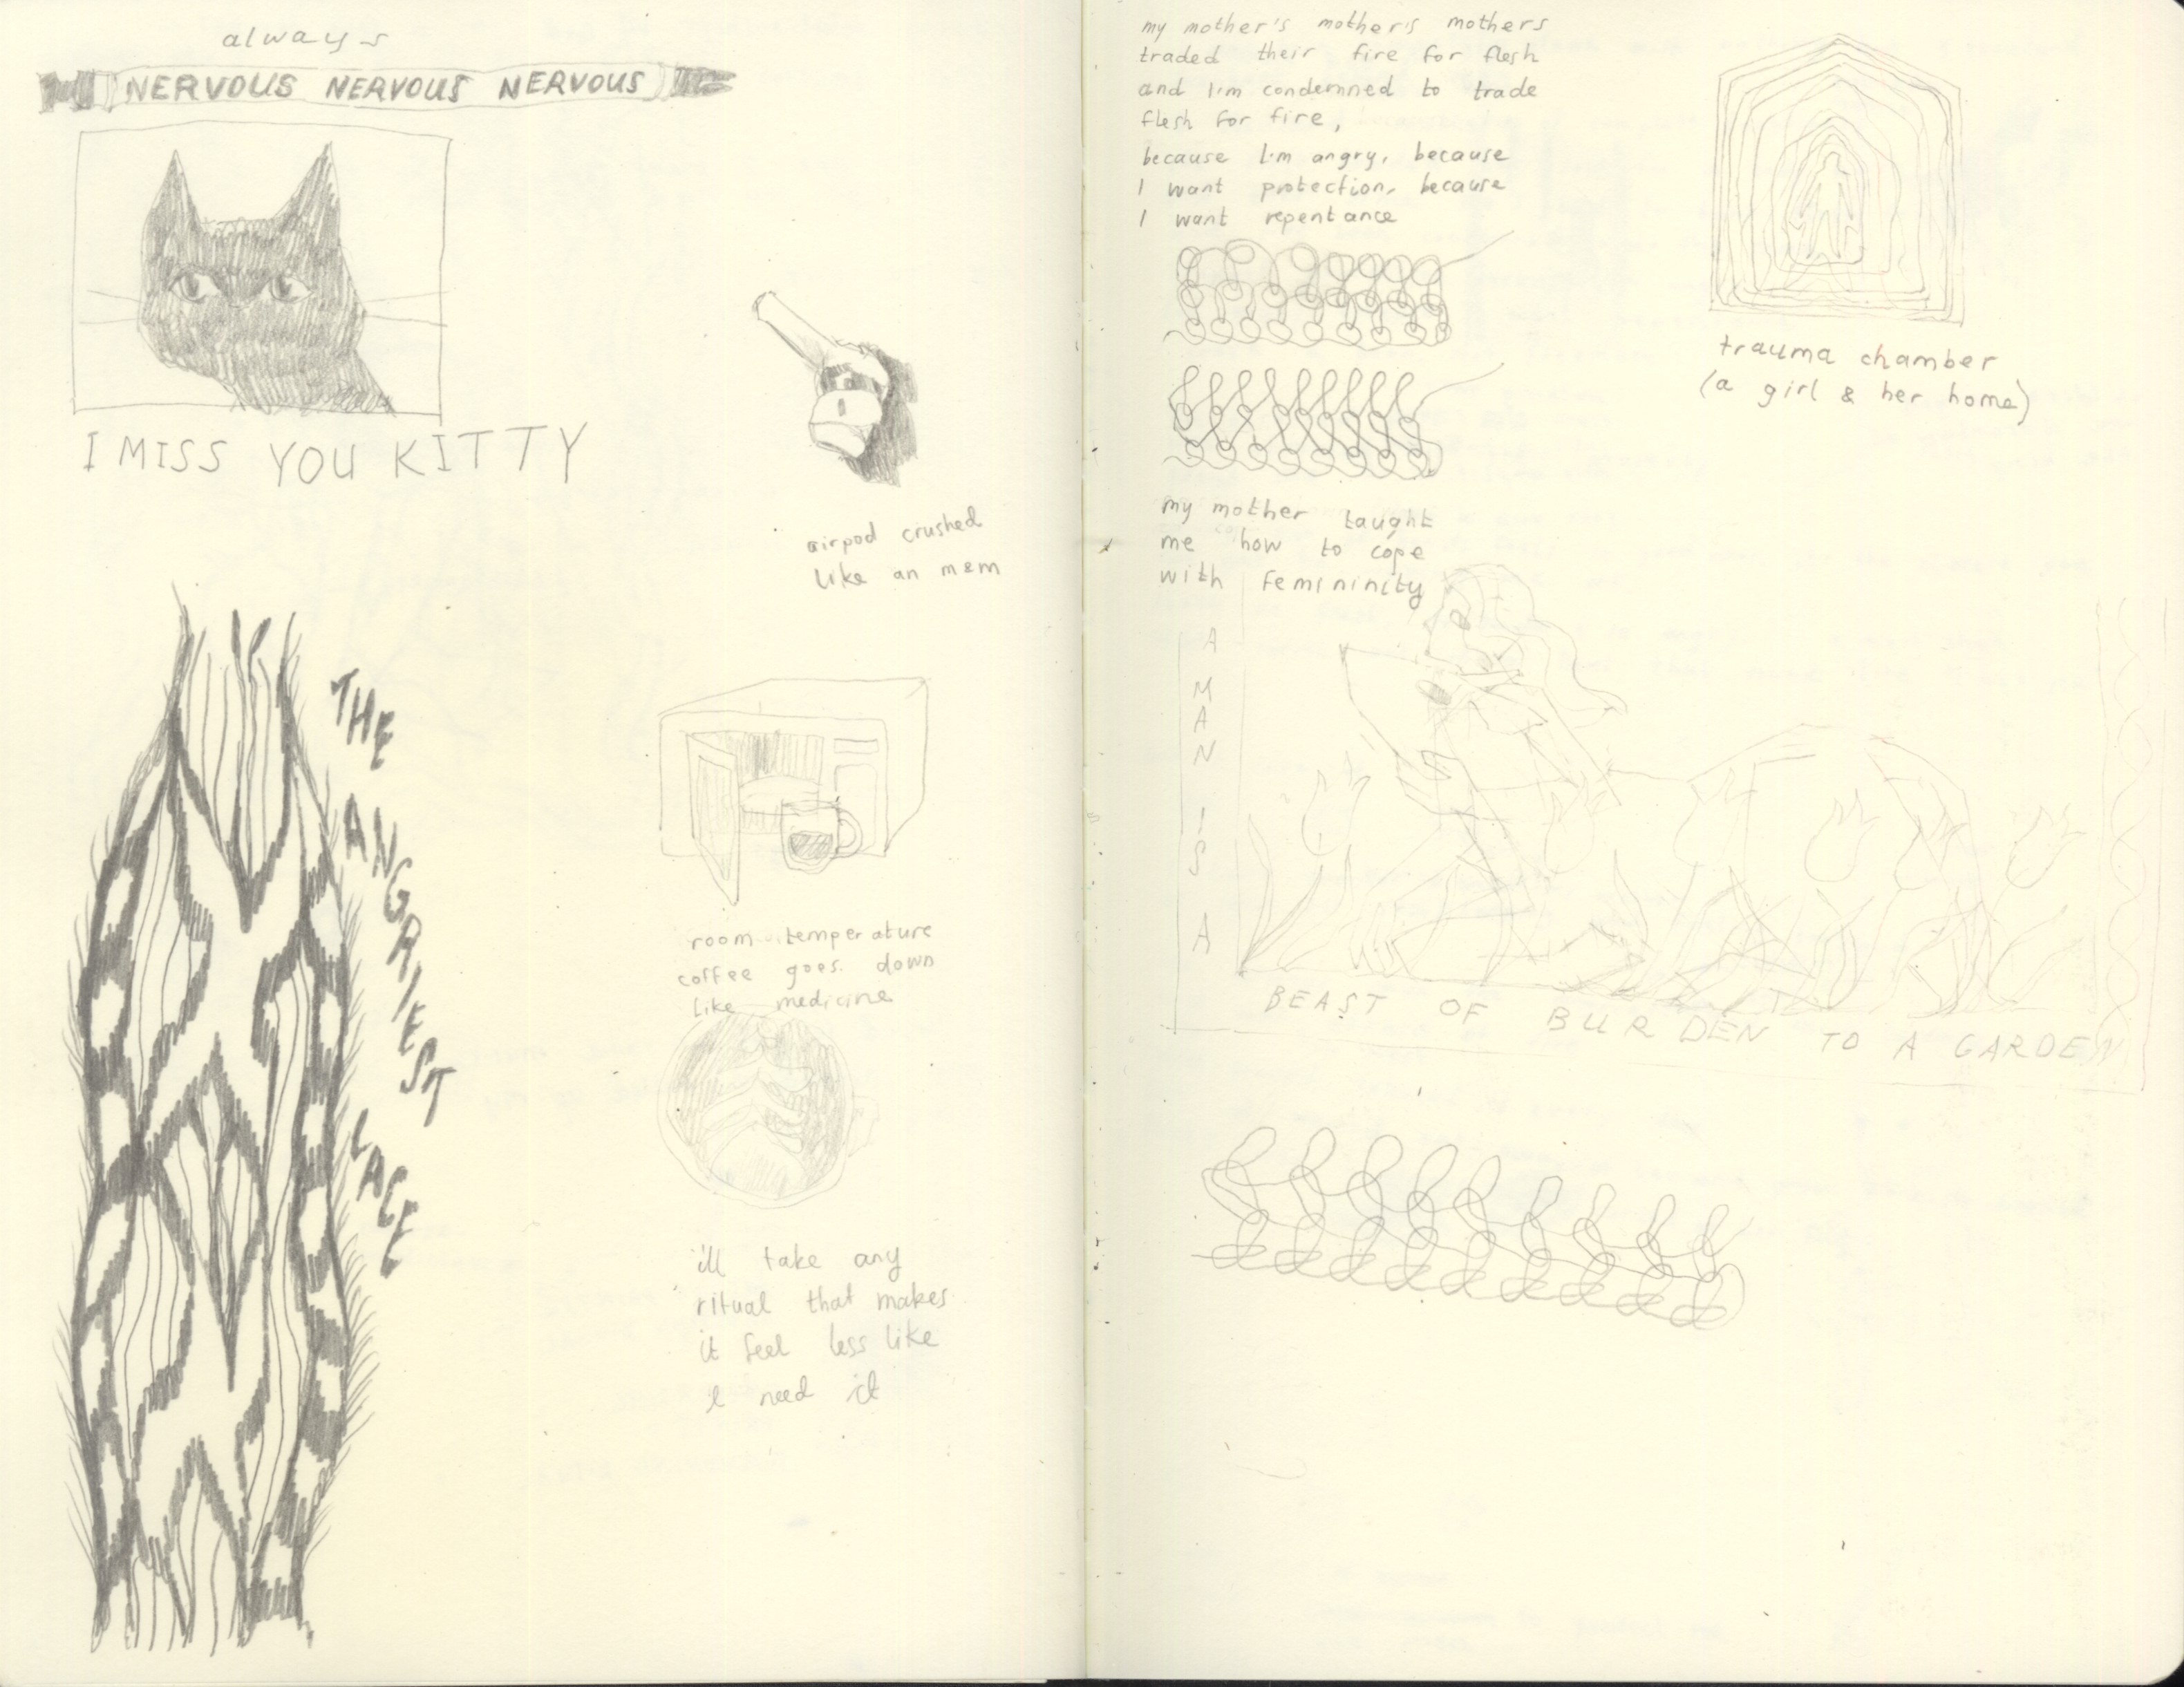 always
NERVOUS NERVOUS NERVOUS
I MISS YOU KITTY
airpod crushed
like an m&m
THE
ANGRIEST
LACE
room temperature
coffee goes down
like medicine
ill take any
ritual that makes
it feel less like
i need it
my mother's mother's mothers
traded their fire for flesh
and I'm condemned to trade
flesh for fire,
because I'm angry, because
I want protection, because
I want repentance
trauma chamber
(a girl & her home)
my mother taught
me how to cope
with femininity
A MAN IS A
BEAST OF BURDEN TO A GARDEN